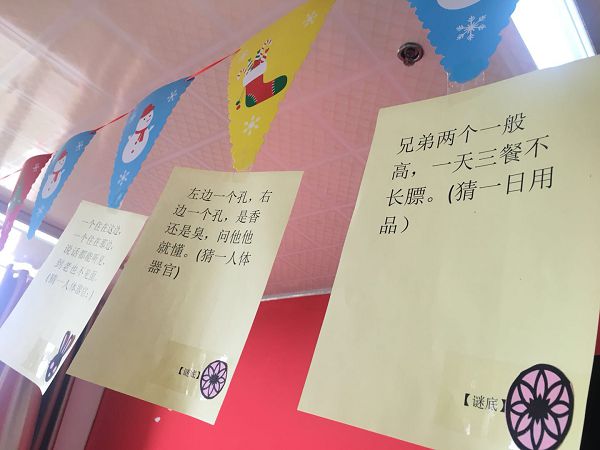 一个住在这边,
一个住在那边,
说话都能听见,
到老也不见面。
(猜一人体器官)
左边一个孔，右
边一个孔，是香
还是臭，问他他
就懂。(猜一人体
器官)
【谜底】
兄弟两个一般
高，一天三餐不
长膘。(猜一日用
品）
【谜底】